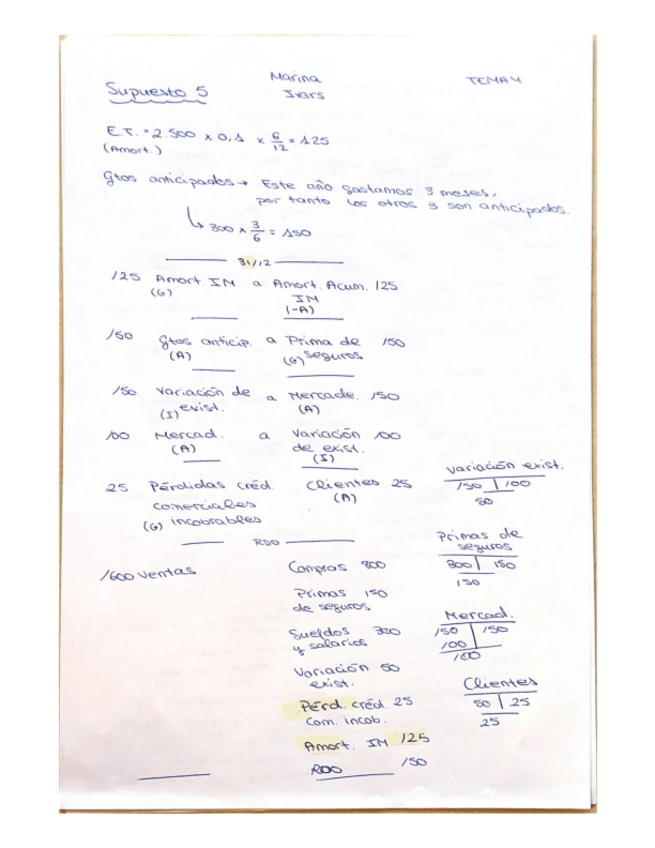 Supuesto 5
Marina
Ivars
TEMA 4
E.T. = 2.500 x 0,1 x 6/12 = 125
(Amort.)
Gtos anticipados → Este año gastamos 3 meses,
por tanto los otros 3 son anticipados.
↳ 300 x 3/6 = 150
31/12
125 Amort IM a Amort. Acum. 125
(G) IM
(-A)
150 Gtos anticip. a Prima de 150
(A) (G) seguros
150 Variación de a Mercade. 150
(I) exist. (A)
100 Mercad. a Variación 100
(A) de exist.
(I)
25 Pérdidas créd. Clientes 25
comerciales (A)
(G) incobrables
RDO
1600 Ventas
Compras 800
Primas 150
de seguros
Sueldos 320
y salarios
Variación 50
exist.
Pérd. créd. 25
Com. incob.
Amort. IM 125
RDO 150
Variación exist.
150 | 100
50
Primas de
seguros
300 | 150
150
Mercad.
150 | 150
100
100
Clientes
50 | 25
25